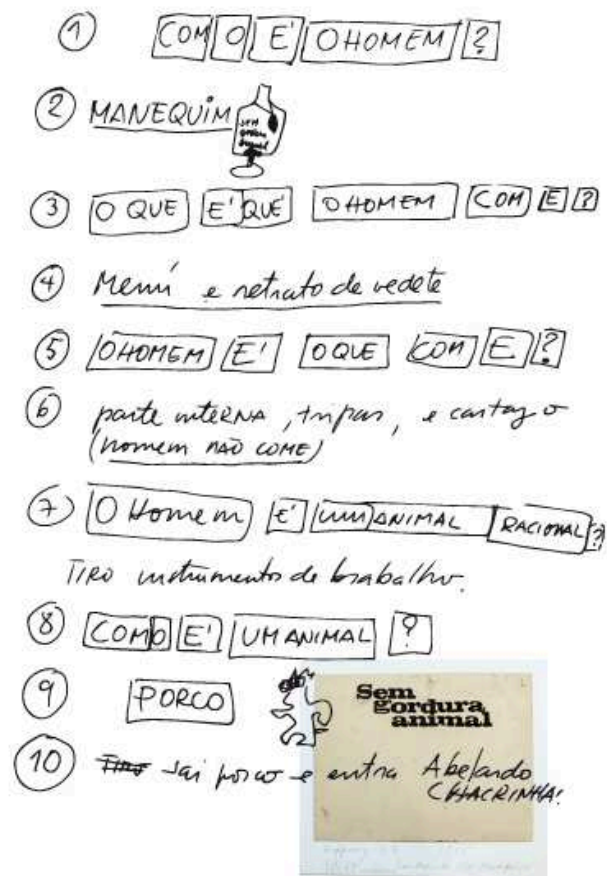 ① COM O E' O HOMEM ?
② MANEQUIM
SEM
gordura
animal
③ O QUE E' QUE O HOMEM COM E ?
④ Menú e retrato de vedete
⑤ O HOMEM E' O QUE COM E ?
⑥ parte interna, tripas, e cartaz o
(homem NÃO COME)
⑦ O Homem E' um ANIMAL RACIONAL ?
TIRO instrumentos de trabalho.
⑧ COM O E' UM ANIMAL ?
⑨ PORCO
Sem
gordura
animal
⑩ sai porco e entra Abelardo
CHACRINHA!